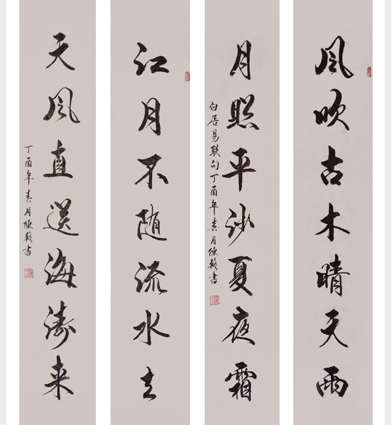 风吹古木晴天雨
月照平沙夏夜霜
白居易联句丁酉年
月
书
江月不随流水去
天风直送海涛来
丁酉年
月
书